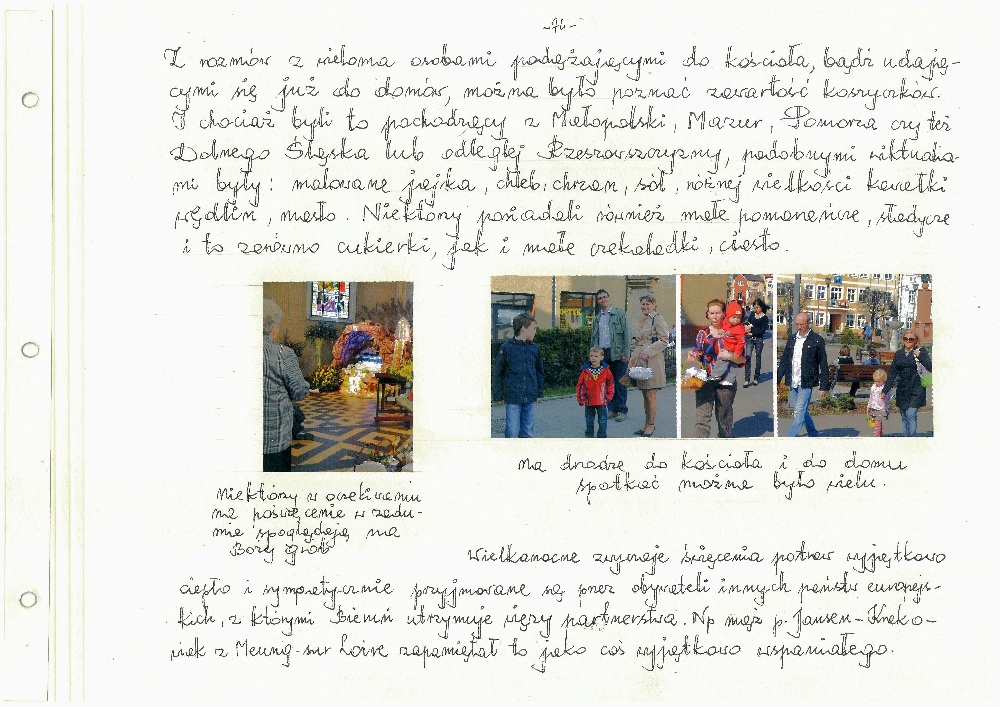 -74-
Z rozmów z wieloma osobami podążającymi do kościoła, bądź udają-
cymi się już do domów, można było poznać zawartość koszyczków.
I chociaż byli to pochodzący z Małopolski, Mazur, Pomorza czy też
Dolnego Śląska lub odległej Rzeszowszczyzny, podobnymi wiktuała-
mi były: malowane jajka, chleb, chrzan, sól, różnej wielkości kawałki
wędlin, masło. Niektórzy posiadali również małe pomarańcze, słodycze
i to zarówno cukierki, jak i małe czekoladki, ciasto.
Niektórzy w oczekiwaniu
na poświęcenie w zadu-
mie spoglądają na
Boży grób
Na drodze do kościoła i do domu
spotkać można było wielu.
Wielkanocne zwyczaje święcenia potraw wyjątkowo
ciepło i sympatycznie przyjmowane są przez obywateli innych państw europejs-
kich, z którymi Bieruń utrzymuje więzy partnerstwa. Np mąż p. Jansen-Krako-
wiak z Meung-sur Loire zapamiętał to jako coś wyjątkowo wspaniałego.